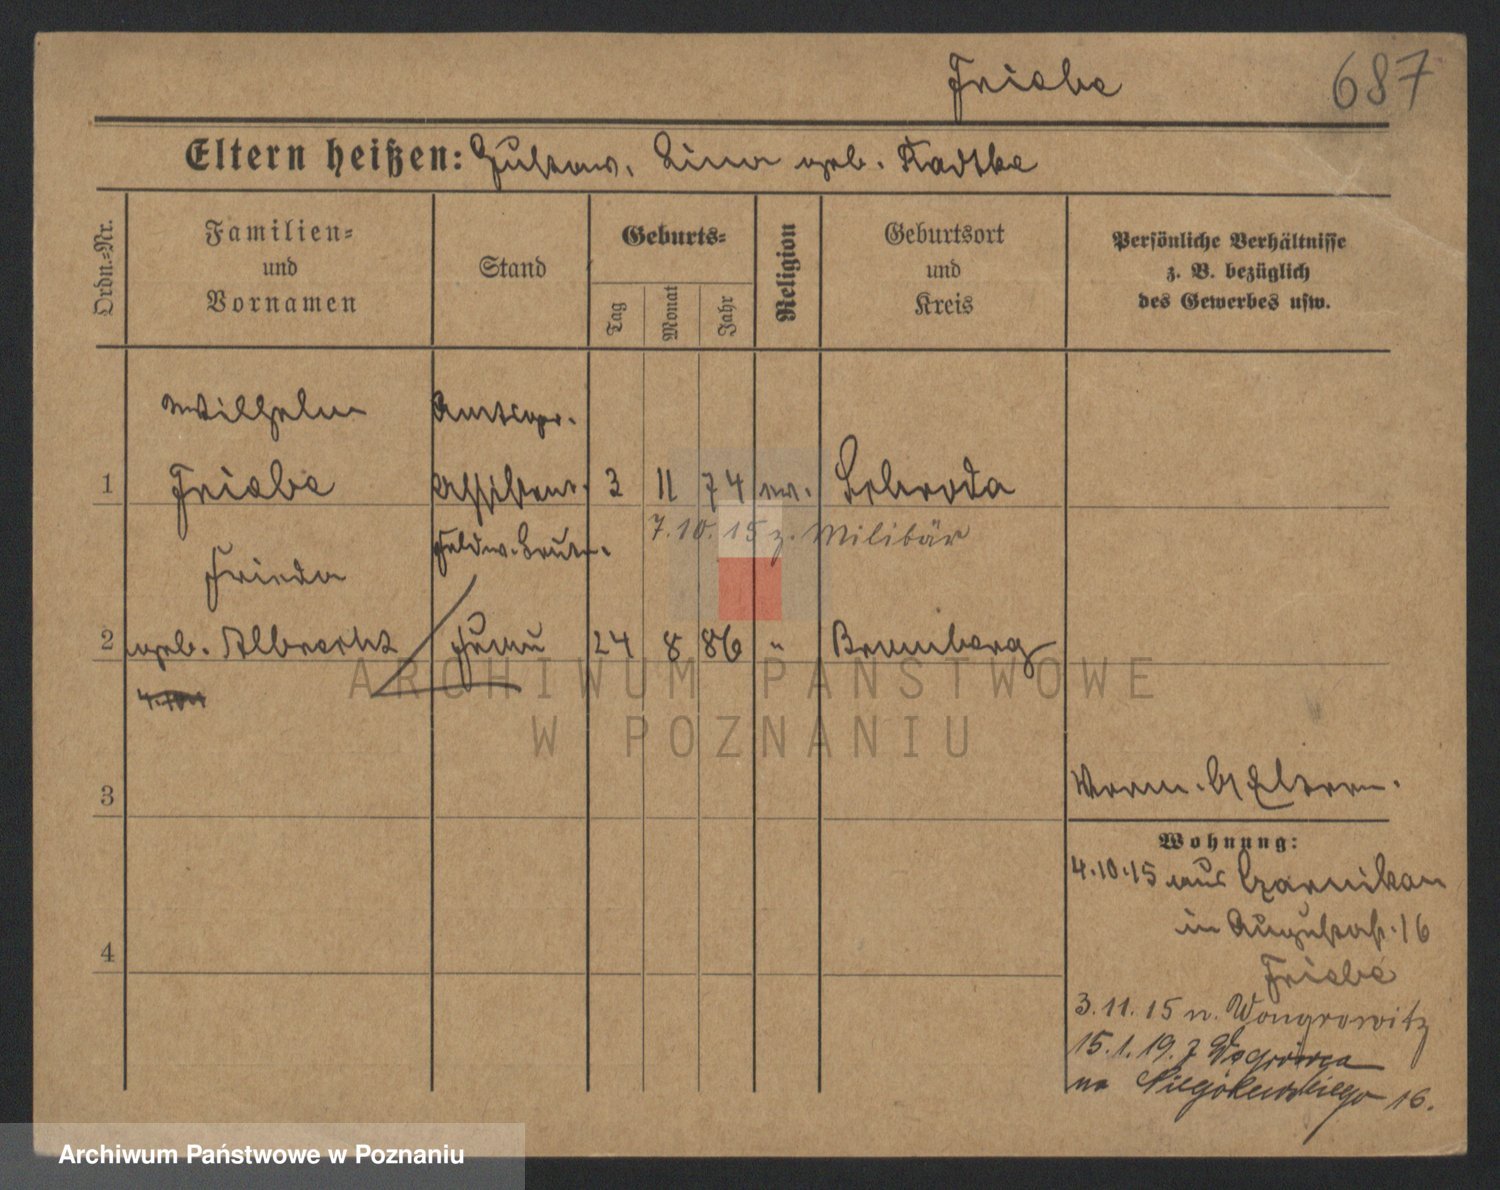 Friebe
687
Eltern heißen: Gustav. Lina geb. Radtke
Ordn.=Nr.
Familien=
und
Vornamen
Stand
Geburts=
Tag
Monat
Jahr
Religion
Geburtsort
und
Kreis
Persönliche Verhältnisse
z. B. bezüglich
des Gewerbes usw.
Wilhelm
1 Friebe
Assistent. 3 11 74 ev. Schroda
7.10.15 z. Militär
Frieda
2 geb. Albrecht
24 8 86 " Bromberg
3
Eltern.
Wohnung:
4.10.15 aus Czarnikau
in Augustastr. 16
4
Friebe
3.11.15 n. Wongrowitz
15.1.19. z Wągrówca
na Niegolewskiego 16.
ARCHIWUM PAŃSTWOWE
W POZNANIU
Archiwum Państwowe w Poznaniu